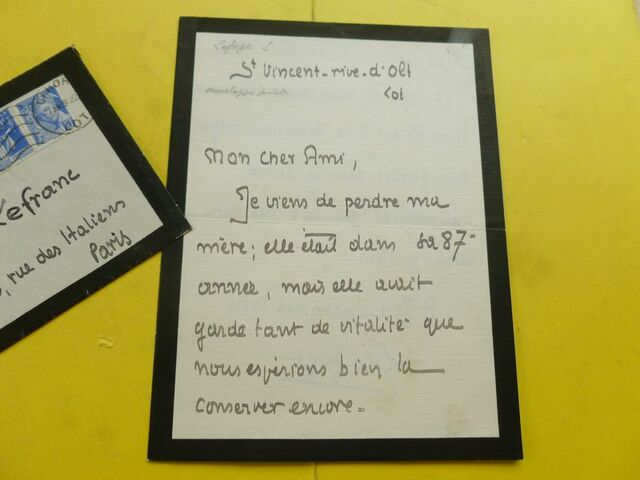 St Vincent-rive-d'Olt
Lot
Mon cher Ami,
Je viens de perdre ma
mère; elle était dans sa 87e
année, mais elle avait
gardé tant de vitalité que
nous espérions bien la
conserver encore.
Lefranc
rue des Italiens
Paris